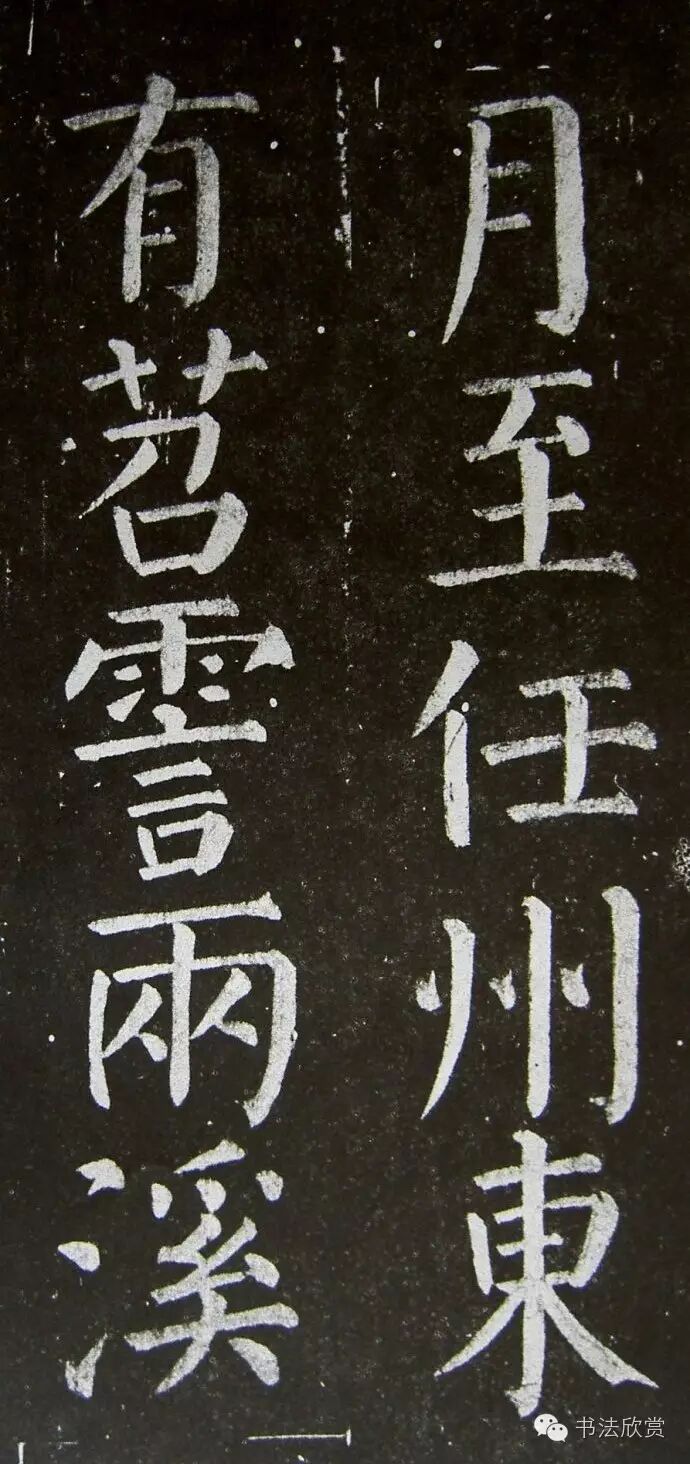 月至任州東
有苕霅兩溪
书法欣赏